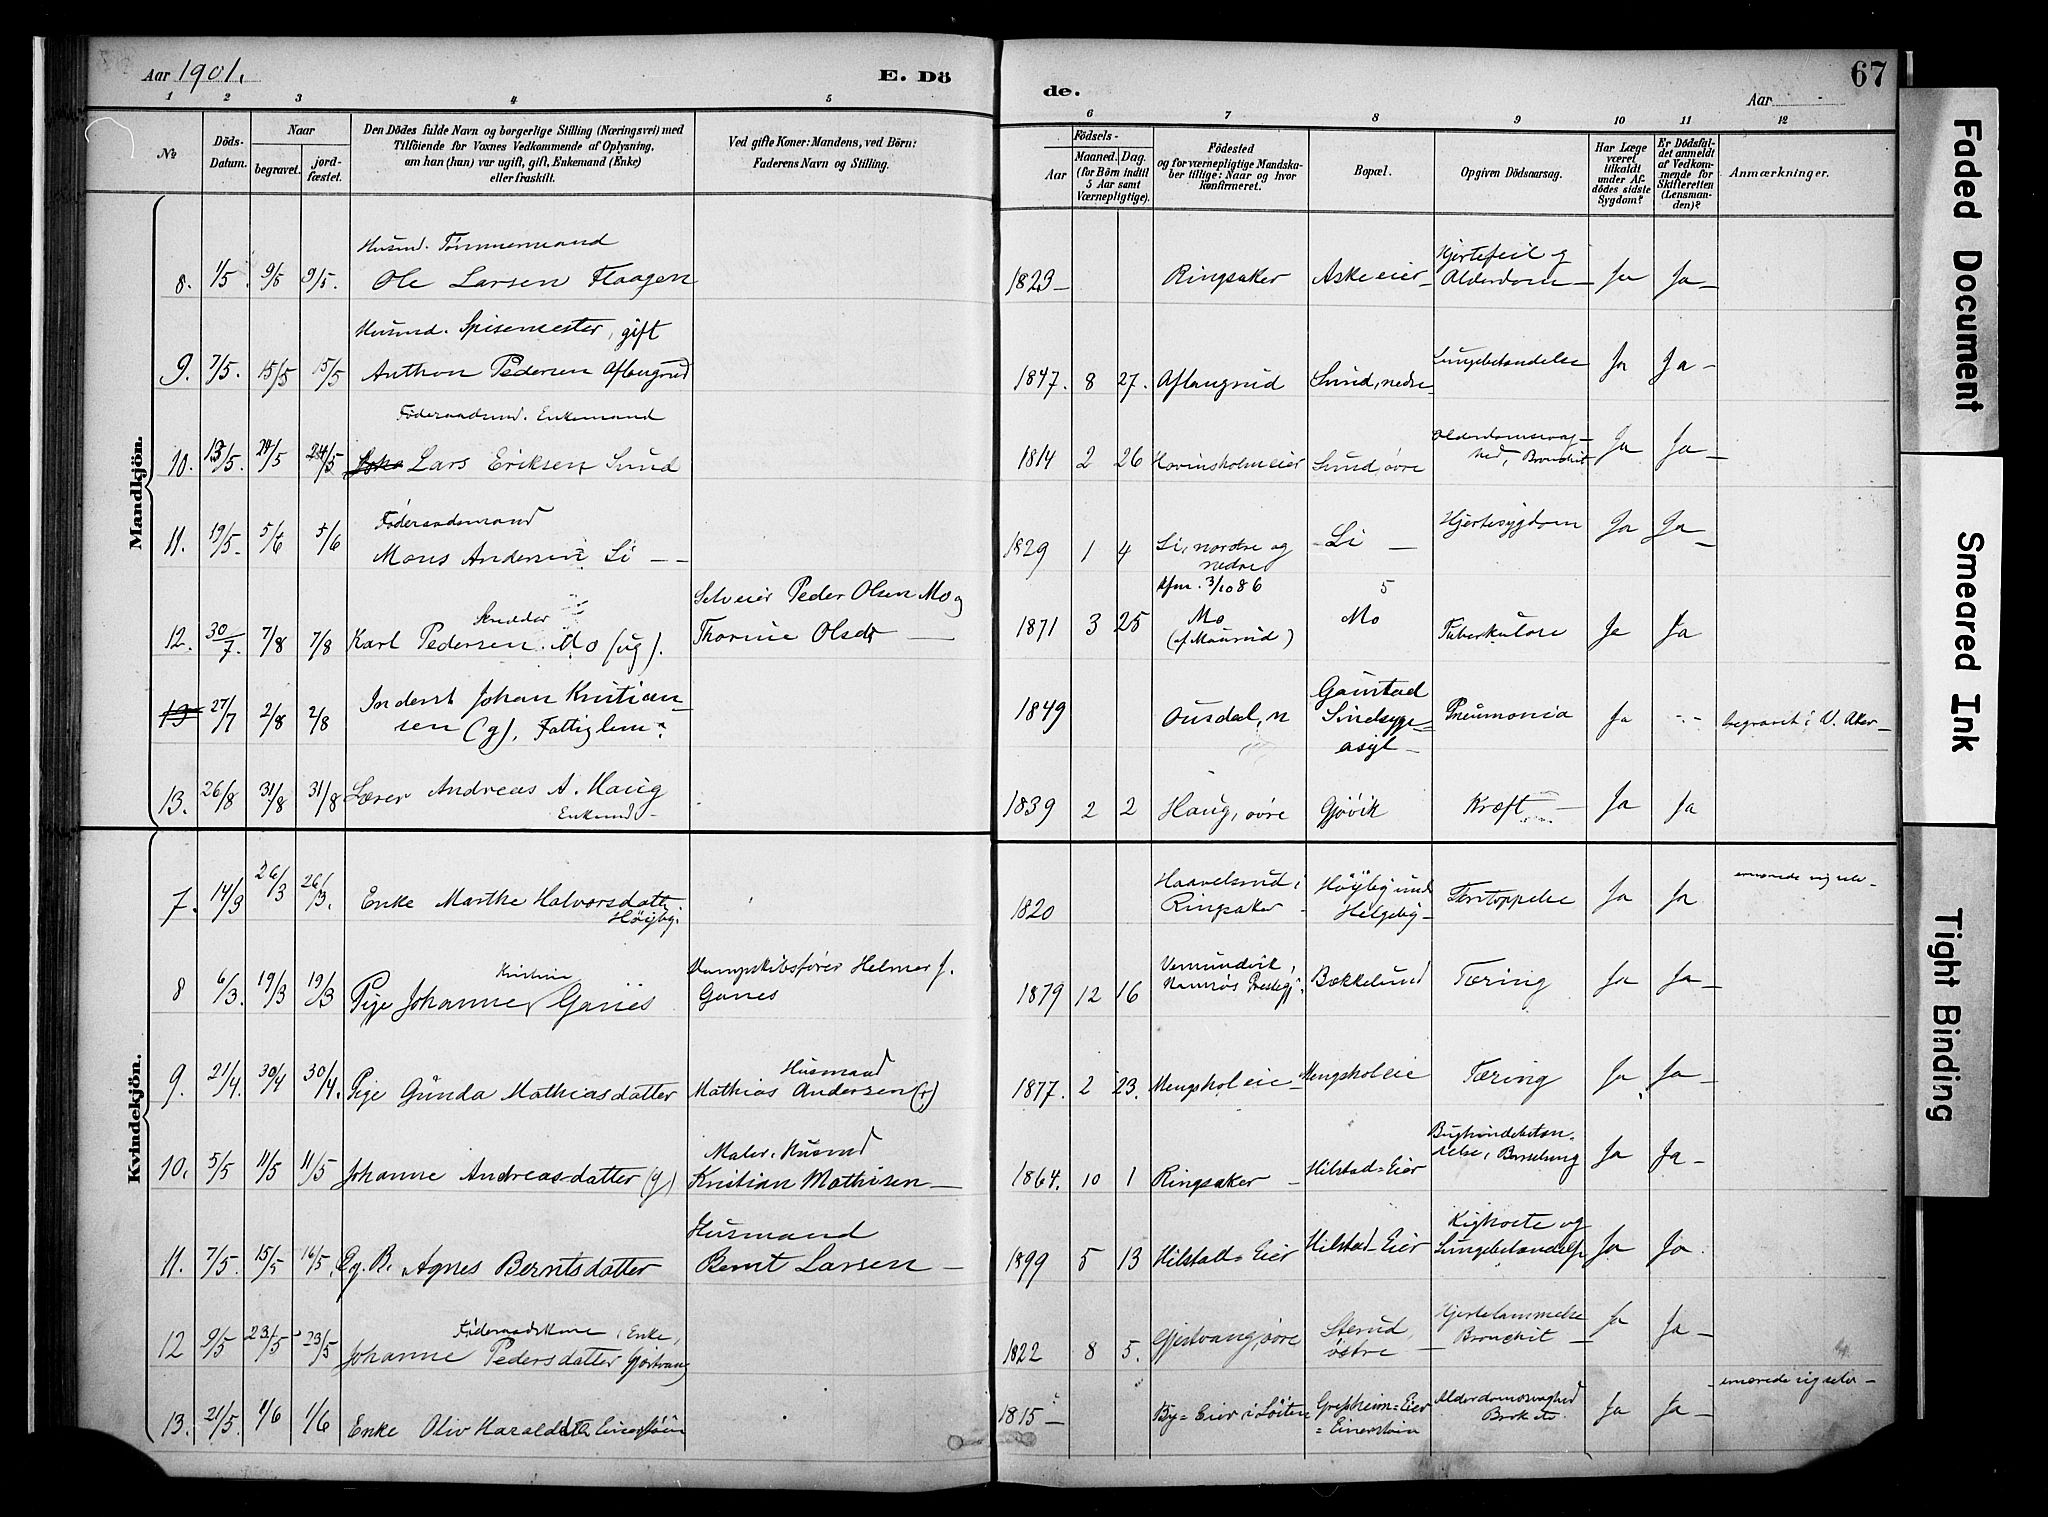 Aar 1901.
E. Dö
de.
Aar
67
1 2 3 4 5 6 7 8 9 10 11 12
No
Döds-Datum.
Naar
begravet.
jord-fæstet.
Den Dödes fulde Navn og borgerlige Stilling (Næringsvei) med
Tilföiende for Voxnes Vedkommende af Oplysning,
om han (hun) var ugift, gift, Enkemand (Enke)
eller fraskilt.
Ved gifte Koner: Mandens, ved Börn:
Faderens Navn og Stilling.
Födsels-
Aar
Maaned. Dag.
(for Börn indtil
5 Aar samt
Værnepligtige).
Födested
og for værnepligtige Mandska-
ber tillige: Naar og hvor
konfirmeret.
Bopæl.
Opgiven Dödsaarsag.
Har Læge
været
tilkaldt
under Af-
dödes sidste
Sygdom?
Er Dödsfal-
det anmeldt
af Vedkom-
mende for
Skifteretten
(Lensman-
den)?
Anmærkninger.
Mandkjön.
Husmd. Tömmermand
8. 1/5 9/5 9/5. Ole Larsen Flaagen
1823 – Ringsaker Aske eier – Hjertefeil og Alderdom – Ja Ja –
Husmd. Spisemester, gift
9. 7/5. 15/5 15/5 Anthon Pedersen Aflangrud
1847. 8 27. Aflangrud Sund, nedre Lungebetændelse Ja Ja –
Föderaadsmd. Enkemand
10. 13/5. 24/5 24/5 Lars Eriksen Sund
1814 2 26 Hovinsholm eier Sund, övre Alderdomssvag-hed, Bronchit Ja Ja –
Föderaadsmand
11. 19/5. 5/6 5/6 Mons Andersen Li – –
1829 1 4 Li, nordre og nedre Li – Hjertesygdom Ja Ja –
Skrædder
12. 30/7. 7/8 7/8 Karl Pedersen Mo (ug). Selveier Peder Olsen Mo og Thorine Olsdr –
1871 3 25 Kfm. 3/10 86 Mo (af Maurud) Mo Tuberkulose Ja Ja
13 27/7 2/8 2/8 Inderst Johan Kristian-sen (g), Fattiglem
1849 Ousdal, n Gaustad Sindsyge-asyl – Pneumonia Ja - - begravet i V. Aker –
13. 26/8 31/8 31/8 Lærer Andreas A. Haug
Enkemd –
1839 2 2 Haug, övre Gjövik Kræft – Ja Ja
Kvindekjön.
7. 14/3 26/3 26/3. Enke Marthe Halvorsdatter Höijby.
1820 Haavelsrud i Ringsaker Höijby under Helgeby – Ja Ja ernærede sig selv –
8 6/3. 19/3 19/3 Pige Johanne Kristine Ganes Dampskibsförer Helmer J. Ganes
1879 12 16 Vemundvik, Namsos Prestegj. Bækkelund Tæring Ja Ja –
9. 21/4. 30/4 30/4. Pige Gunda Mathiasdatter Husmand Mathias Andersen (r)
1877. 2 23. Mengshol eie – Mengshol eie Tæring Ja Ja –
10. 5/5 11/5 11/5 Johanne Andreasdatter (g) Maler. Husmd Kristian Mathisen –
1864. 10 1 Ringsaker – Hilstad = Eier Bughindebetæn-delse, Barselseng Ja Ja –
11. 7/5. 15/5 16/5. Eg. B. Agnes Berntsdatter Husmand Bernt Larsen –
1899 5 13 Hilstad = Eier Hilstad – Eier Kighoste og Lungebetændelse Ja Ja
Föderaadskone, Enke,
12 9/5 23/5 23/5 Johanne Pedersdatter Gjestvang
1822 8 5. Gjestvang, övre Sterud, östre – Hjertelammelse Bronchit – Ja Ja –
13. 21/5. 1/6 1/6 Enke Oliv Haraldsdtr Einerstöin
1815 – By = Eier i Löiten Grefsheim = Eier = Einerstöin Alderdomssvaghed Ja Ja – ernærede sig selv –
Faded Document
Smeared Ink
Tight Binding